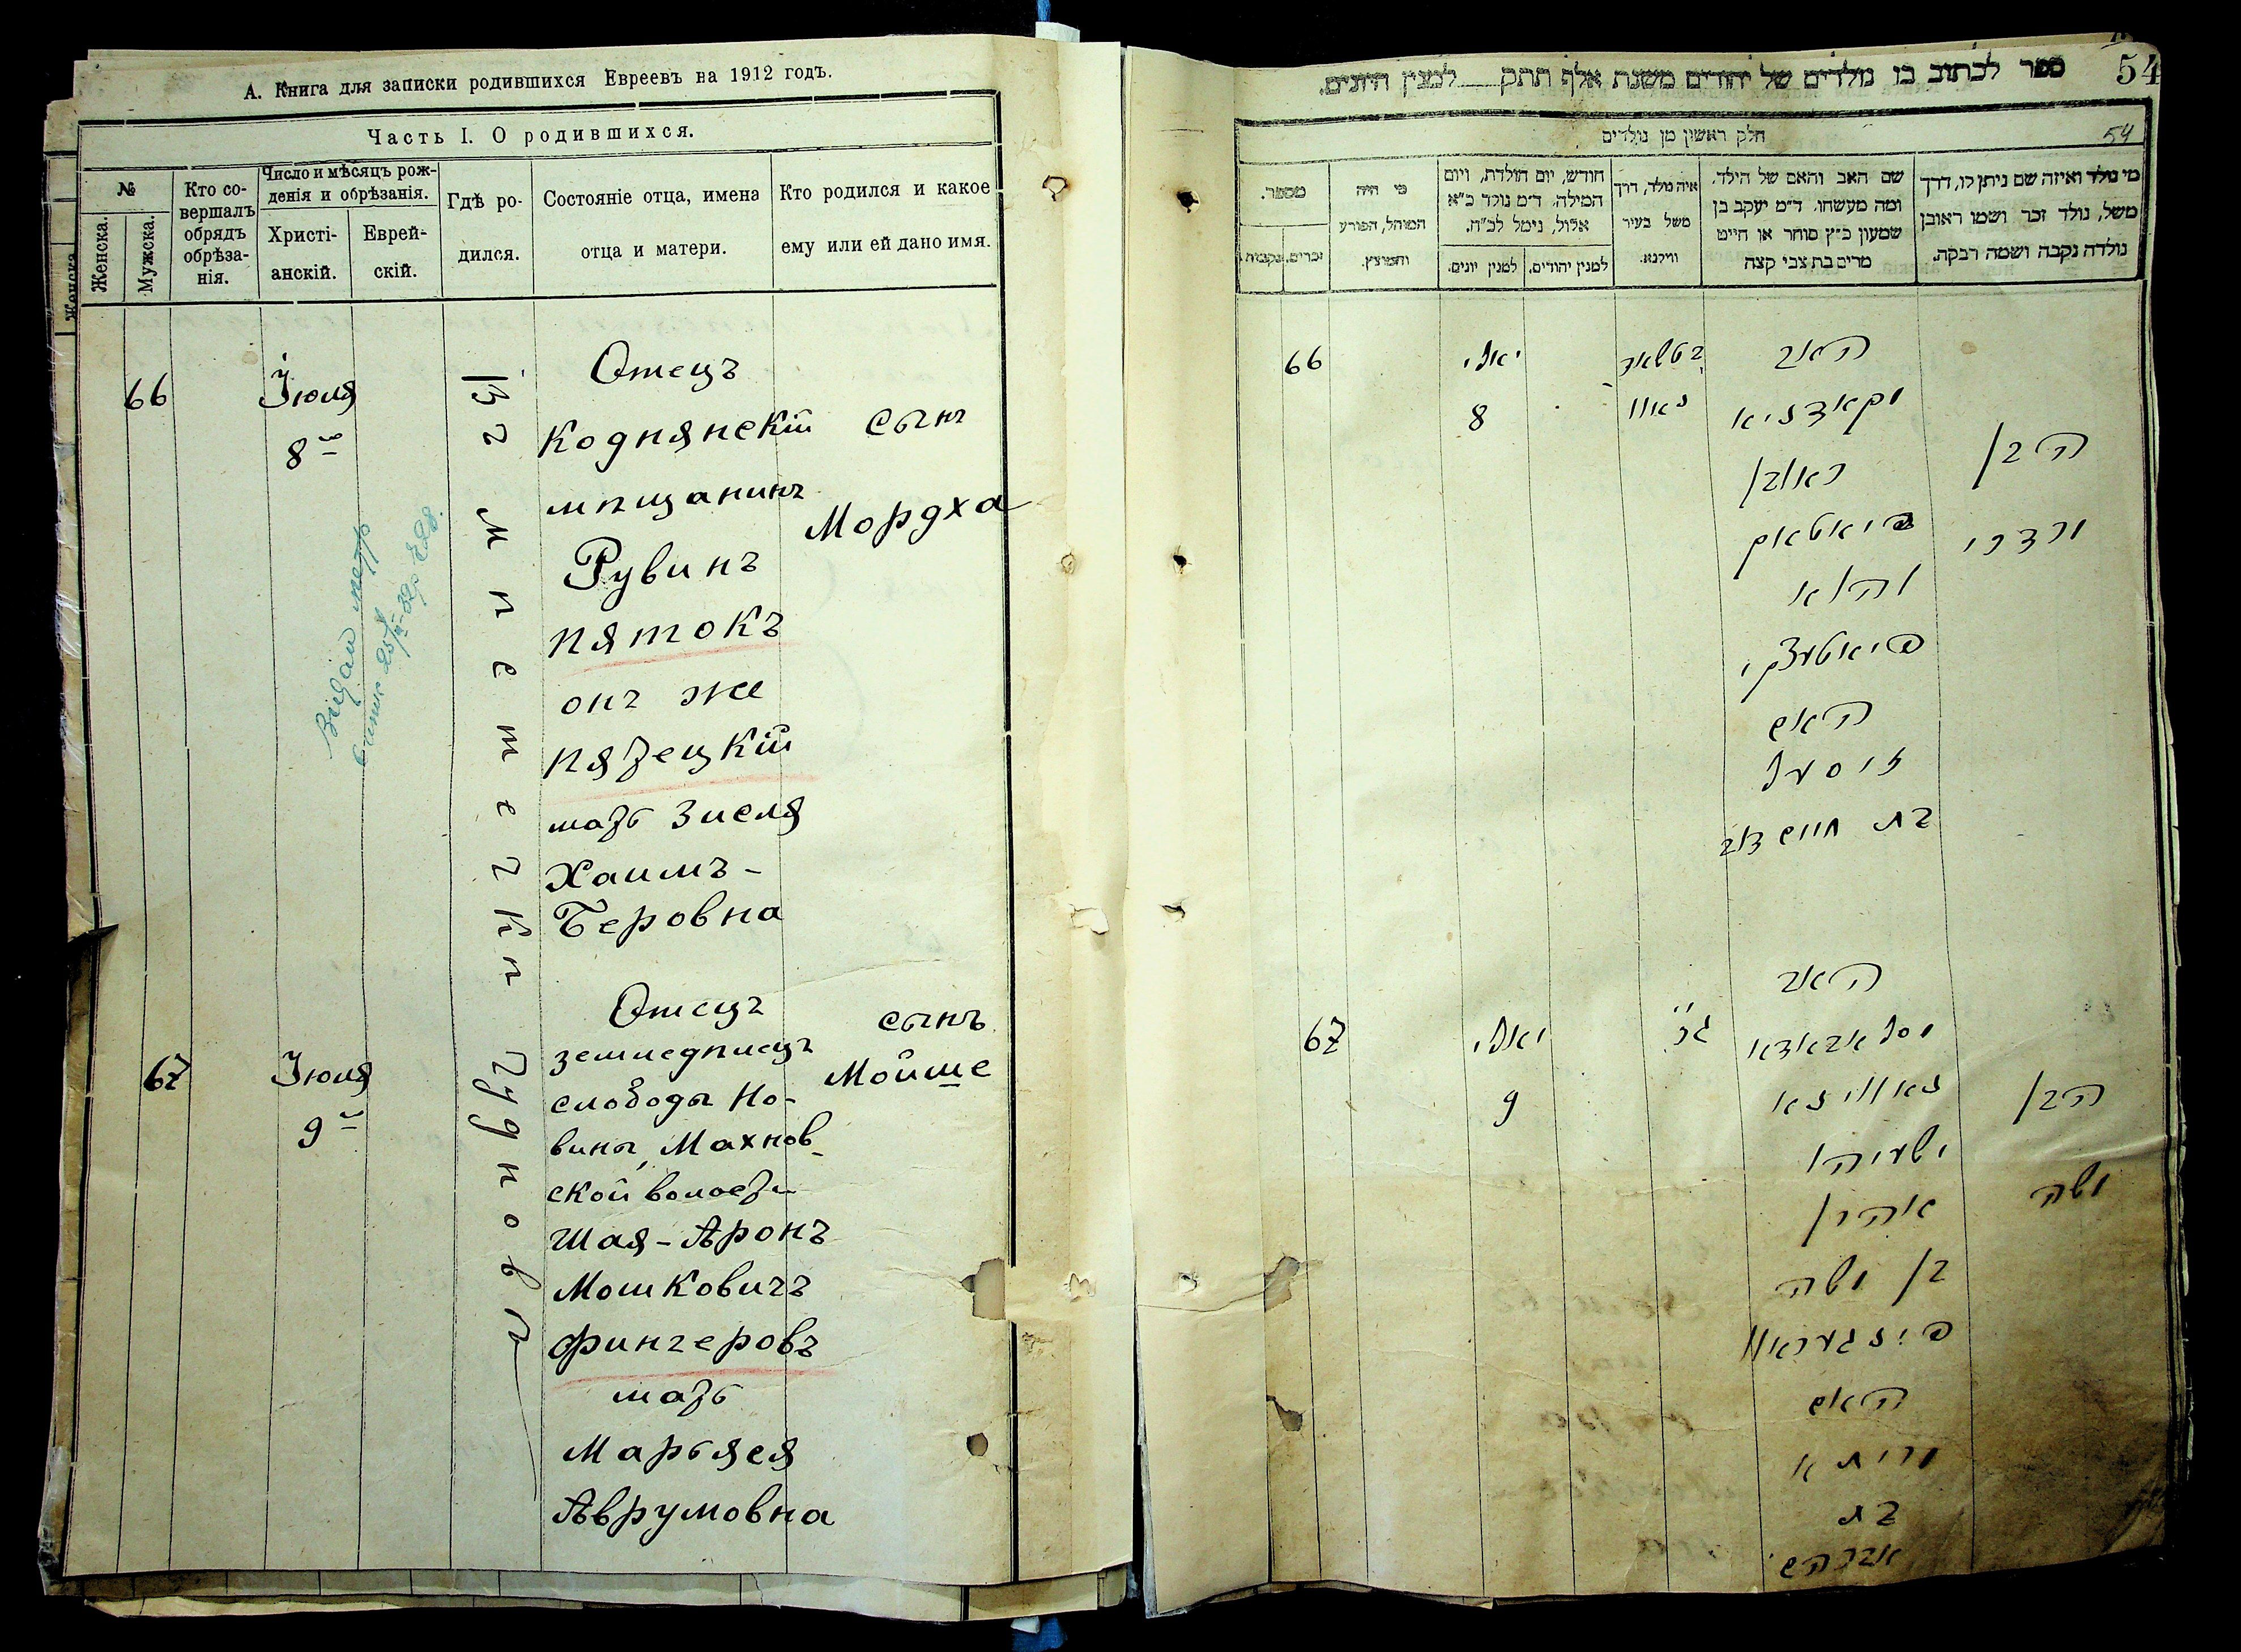 А. Книга для записки родившихся Евреевъ на 1912 годъ.
Часть I. О родившихся.
№
Женска.
Мужска.
Кто со-
вершалъ
обрядъ
обрѣза-
нія.
Число и мѣсяцъ рож-
денія и обрѣзанія.
Христі-
анскій.
Еврей-
скій.
Гдѣ ро-
дился.
Состояніе отца, имена
отца и матери.
Кто родился и какое
ему или ей дано имя.
66
Іюля
8
Въ мѣстечкѣ Чудновѣ
Отецъ
Коднянскій
мѣщанинъ
Рувинъ
Пятокъ
онъ же
Пятецкій
мать Зисля
Хаимъ-
Беровна
сынъ
Мордха
67
Іюля
9
Отецъ
земледѣлецъ
слободы Но-
вины, Махнов-
ской волости
Шая-Аронъ
Мошковичъ
Фингеровъ
мать
Марьяся
Аврумовна
сынъ
Мойше
ספר לכתוב בו נולדים של יהודים משנת אלף תתק למנין היונים.
54
חלק ראשון מן נולדים
54
מי נולד ואיזה שם ניתן לו, דרך
משל, נולד זכר ושמו ראובן
נולדה נקבה ושמה רבקה.
שם האב והאם של הילד,
ומה מעשהו. ד״מ יעקב בן
שמעון כ״ץ סוחר או חייט
מרים בת צבי קצה
איה נולד, דרך
משל בעיר
ווילנא.
חודש, יום הולדת, ויום
המילה. ד״מ נולד כ״א
אלול, נימל לכ״ח.
למנין יהודים.
למנין יונים.
מי היה
המוהל, הפורע
והמוצץ.
מספר.
זכרים.
נקבות.
66
יאלי
8
האב
ראובן
פיאטאק
והוא
פיאטעצקי
האם
זיסעל
בת חיים דוב
הבן
מרדכי
67
יאלי
9
האב
ישעיהו
אהרן
בן משה
פינגעראוו
האם
בת
אברהם
הבן
משה